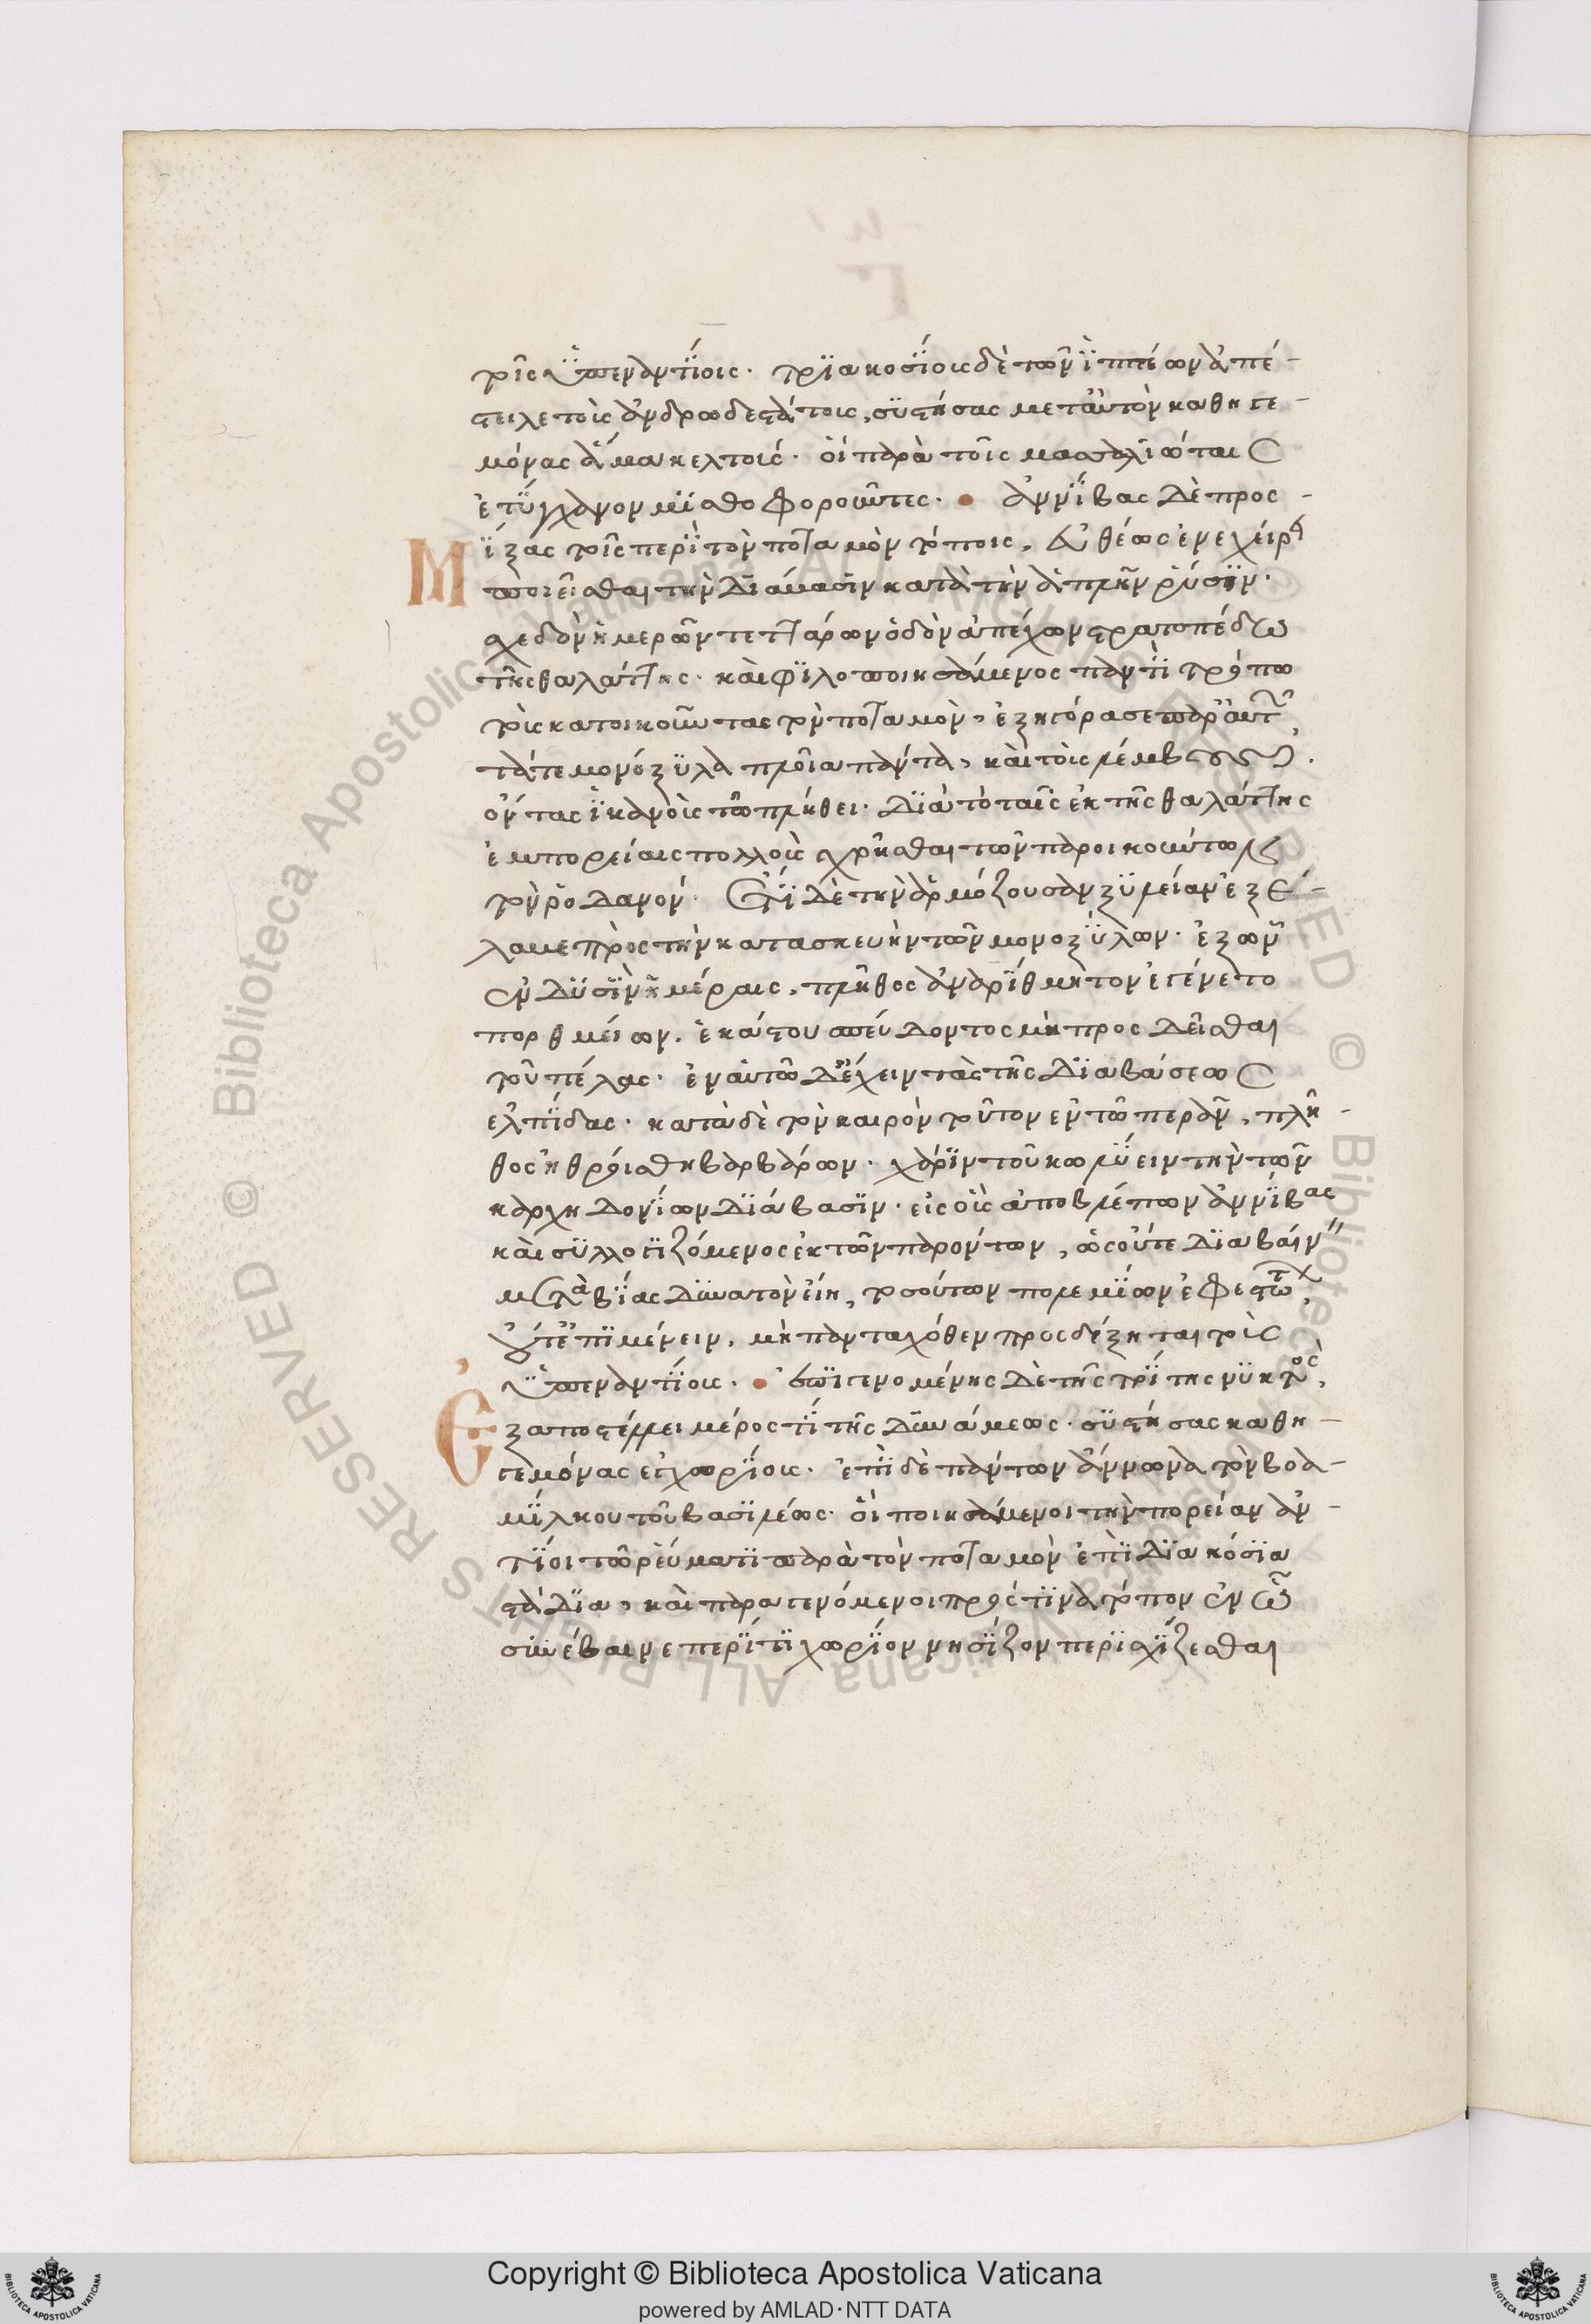 τοῖς ὑπεναντίοις. τριακοσίους δὲ τῶν ἱππέων ἀπέ-
στειλε τοὺς ἀνδρωδεστάτους, συστήσας μετ' αὐτὸν καθηγε-
μόνας ἅμα κελτούς. οἳ παρὰ τοῖς μασσαλιώταις
ἐτύγχανον μισθοφοροῦντες. ἀννίβας δὲ προς-
Μίξας τοῖς περὶ τὸν ποταμὸν τόποις, εὐθέως ἐνεχείρει
ποιεῖσθαι τὴν διάβασιν κατὰ τὴν ἁπλῆν ῥύσιν.
σχεδὸν ἡμερῶν τεττάρων ὁδὸν ἀπέχων στρατοπέδω
τῆς θαλάττης. καὶ φιλοποιησάμενος παντὶ τρόπω
τοὺς κατοικοῦντας τὸν ποταμὸν, ἐξηγόρασε παρ' αὐτῶν
τά τε μονόξυλα πλοῖα πάντα, καὶ τοὺς λέμβους.
ὄντας ἱκανοὺς τῶ πλήθει. διὰ τὸ ταῖς ἐκ τῆς θαλάττης
ἐμπορείαις πολλοὺς χρῆσθαι τῶν παροικούντων
τὸν ῥοδανόν. ἔτι δὲ τὴν ἁρμόζουσαν ξυλείαν ἐξέ-
λαβε πρὸς τὴν κατασκευὴν τῶν μονοξύλων. ἐξ ὧν
ἐν δυσὶν ἡμέραις, πλῆθος ἀναρίθμητον ἐγένετο
πορθμείων. ἑκάστου σπεύδοντος μὴ προςδεῖσθαι
τοῦ πέλας. ἐν αὑτῶ δ' ἔχειν τὰς τῆς διαβάσεως
ἐλπίδας. κατὰ δὲ τὸν καιρὸν τοῦτον ἐν τῶ πέραν, πλῆ-
θος ἠθροίσθη βαρβάρων. χάριν τοῦ κωλύειν τὴν τῶν
καρχηδονίων διάβασιν. εἰς οὓς ἀποβλέπων ἀννίβας
καὶ συλλογιζόμενος ἐκ τῶν παρόντων, ὡς οὔτε διαβαίνειν
μετὰ βίας δυνατὸν εἴη, τοσούτων πολεμίων ἐφεστώτων,
οὔτ' ἐπιμένειν, μὴ πανταχόθεν προςδέξηται τοὺς
ὑπεναντίους. ἐπιγενομένης δὲ τῆς τρίτης νυκτὸς,
Ἐξαποστέλλει μέρος τι τῆς δυνάμεως. συστήσας καθη-
γεμόνας ἐγχωρίους. ἐπὶ δὲ πάντων ἄννωνα τὸν βοα-
μίλκου τοῦ βασιλέως. οἳ ποιησάμενοι τὴν πορείαν ἀν-
τίοι τῶ ῥεύματι παρὰ τὸν ποταμὸν ἐπὶ διακόσια
στάδια, καὶ παραγενόμενοι πρός τινα τόπον ἐν ὧ
συνέβαινε περί τι χωρίον νησίζον περισχίζεσθαι
Copyright © Biblioteca Apostolica Vaticana
powered by AMLAD·NTT DATA